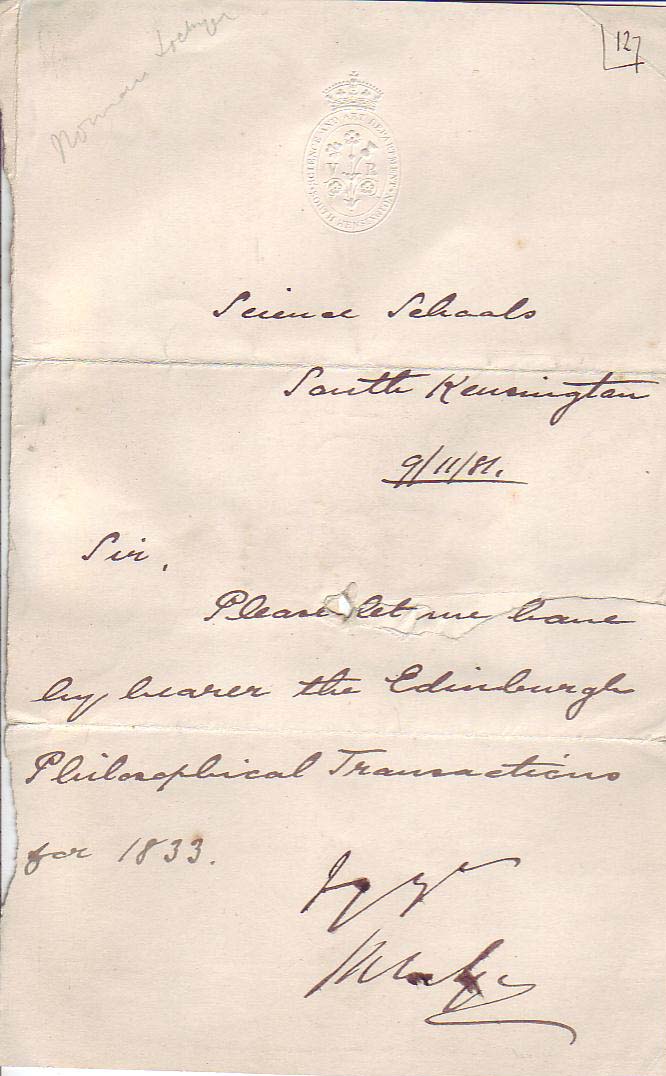 Norman Lockyer
127
SCIENCE AND ART DEPARTMENT
V R
SOUTH KENSINGTON
Science Schools
South Kensington
9/11/81.
Sir,
Please let me have
by bearer the Edinburgh
Philosophical Transactions
for 1833.